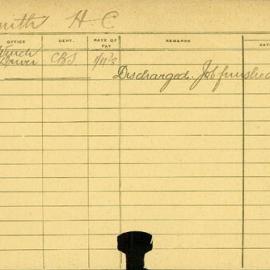 mith H. C
OFFICE DEPT. RATE OF PAY REMARKS DAT
Winch
Driver C.B.S. 1/11½
Discharged. Job finished